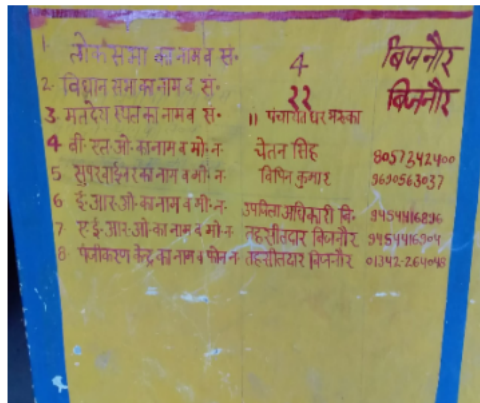 1. लोकसभा का नाम व सं॰ 4 बिजनौर
2. विधान सभा का नाम व सं॰ २२ बिजनौर
3. मतदेय स्थल का नाम व सं॰ 11 पंचायत घर
4 बी॰एल॰ओ॰का नाम व मो॰न॰ चेतन सिंह 8057342400
5 सुपरवाईजर का नाम व मो॰न॰ विपिन कुमार 9690563037
6 ई॰आर॰ओ॰का नाम व मो॰न॰ उपजिला अधिकारी बि॰ 9454416896
7 ए॰ई॰आर॰ओ॰का नाम व मो॰न॰ तहसीलदार बिजनौर 9454416904
8 पंजीकरण केन्द्र का नाम व फोन न॰ तहसीलदार बिजनौर 01342-264048